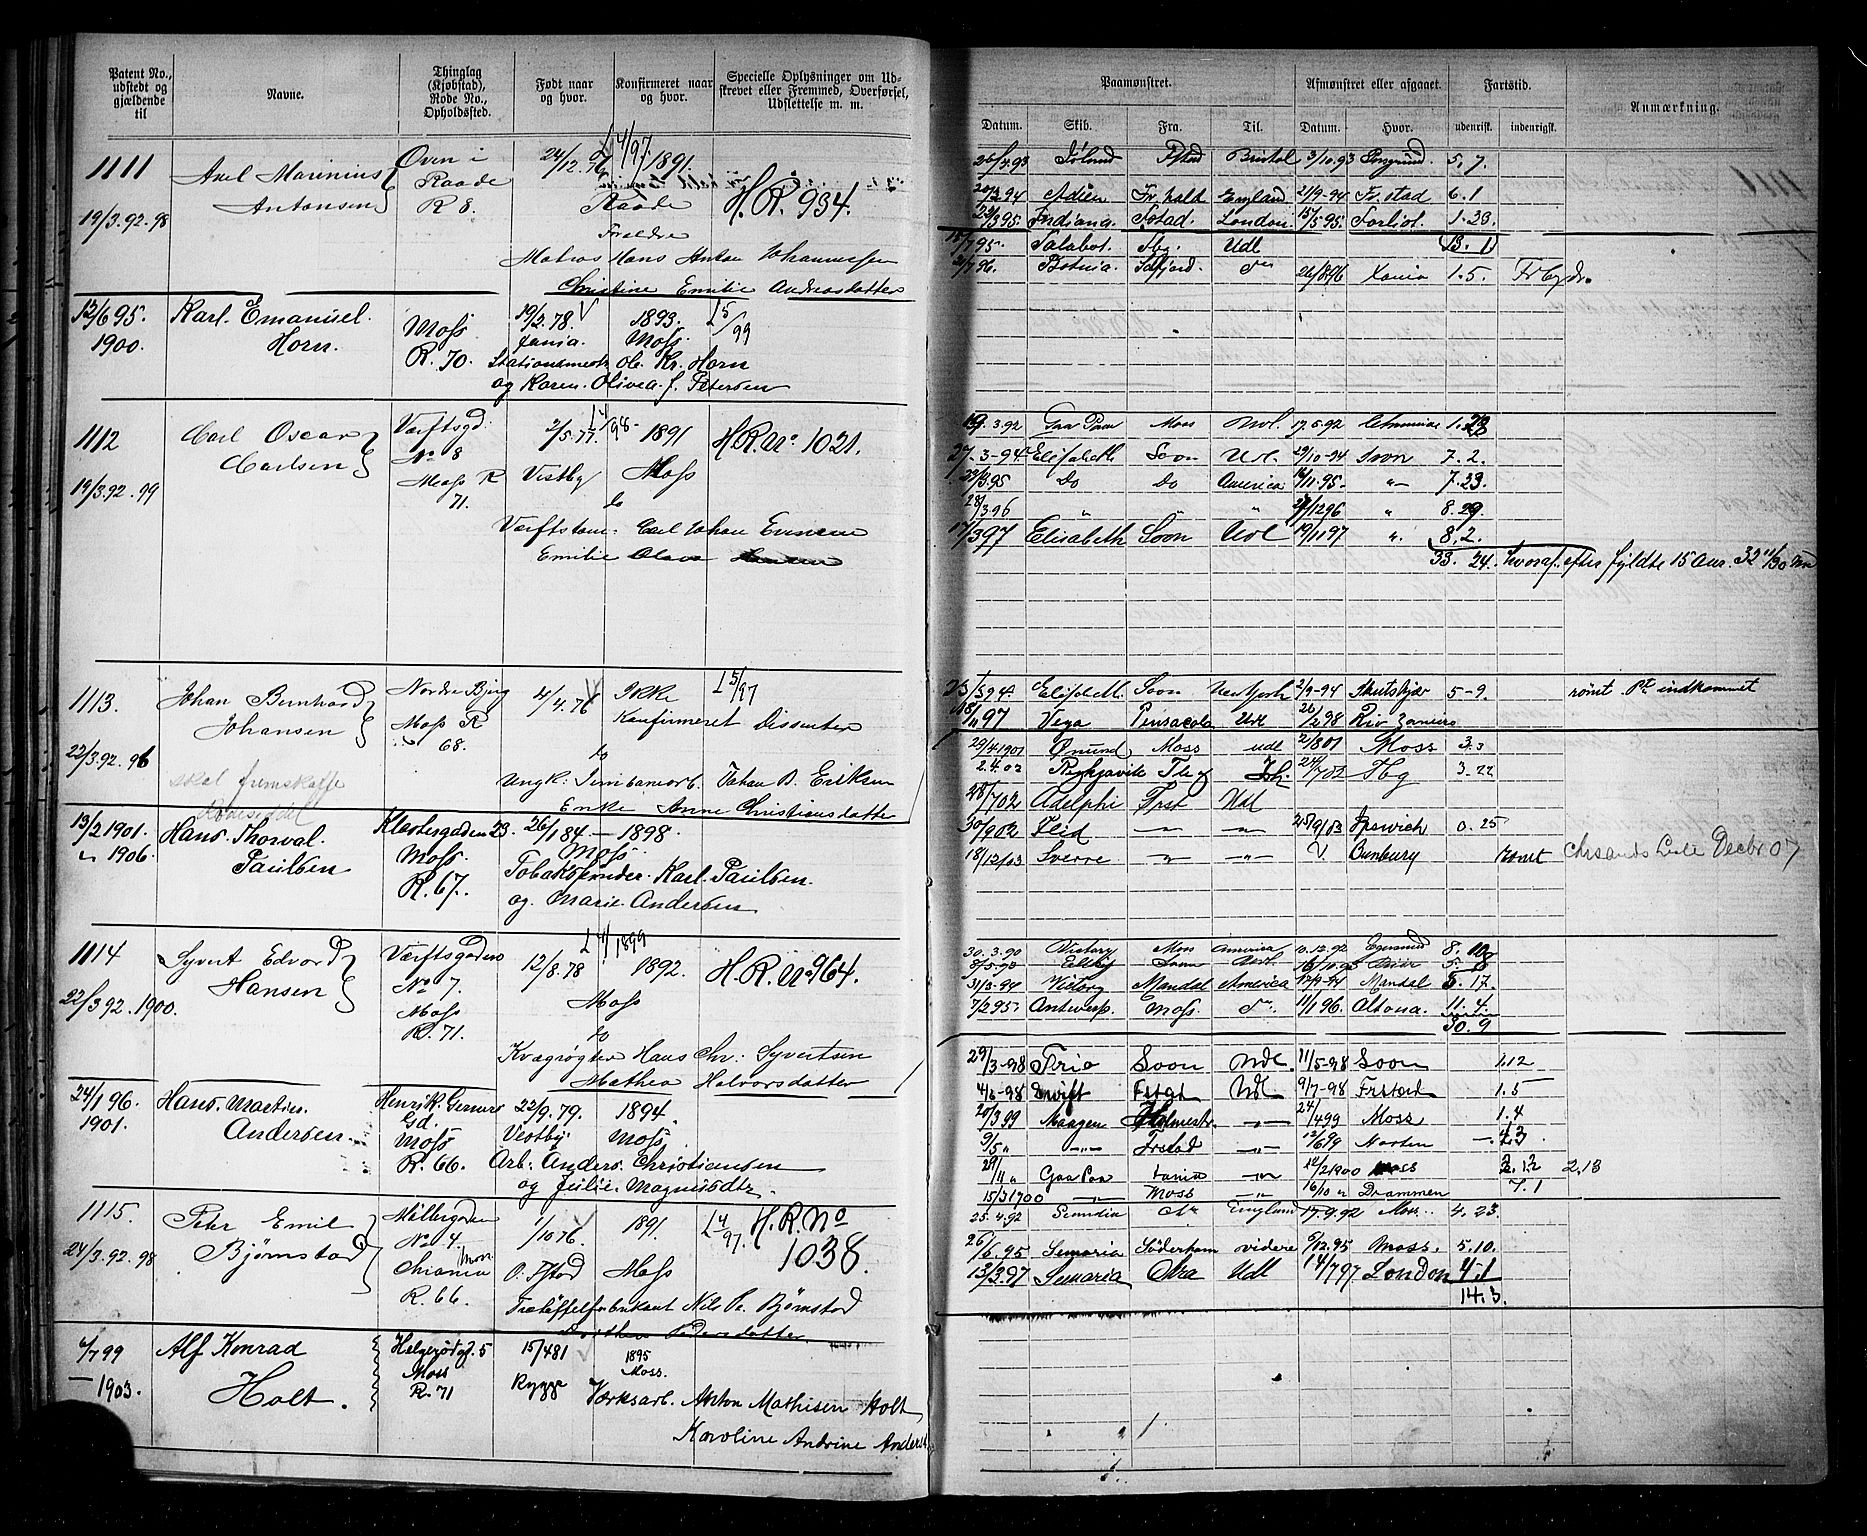 Patent No., udstedt og gjældende til
Navne.
Thinglag (Kjøbstad), Rode No., Opholdssted.
Født naar og hvor.
Konfirmeret naar og hvor.
Specielle Oplysninger om Udskrevet eller Fremmed, Overførsel, Udslettelse m. m.
1111
19/3.92.98
Axel Marinius
Antonsen
Oven i
Raade
R 8.
24/12.76
1891.
Raade
H.R. 934.
Forældre
Matros Hans Anton Johannessen
Christine Emilie Andreasdatter
12/6 95.
1900.
Karl. Emanuel.
Horn.
Moss
R. 70.
19/2.78.
1893.
Moss.
15/99
Stationsmestr. Ole. Kr. Horn
og Karen. Olivea. f. Petersen
1112
19/3.92.99
Carl Oscar
Carlsen
Værftsgd.
No 8
Moss R
71.
2/5.77.
1891
Vestby
Moss
H.R.No. 1021.
Værftstøm. Carl Johan Evensen
Emilie Olava
1113.
22/3.92.96
Johan Bernhard
Johansen
Nordre Bjerg
Moss R
68.
4/4.76
Ikke
Konfirmeret Dissenter
15/97
Ungk: Tømbermarb. Johan B. Eriksen
Enke Anne Christiansdatter
skal fremskaffe
Rodeseddel
13/2 1901.
" 1906.
Hans. Thorval.
Paulsen
Klostergaden 23.
Moss.
R. 67.
26/1 84 — 1898.
Moss.
Tobakspinder. Karl. Paulsen.
og. Marie. Andersen
1114
22/3 92.1900.
Syvert Edvard
Hansen
Værftsgaden
No 7.
Moss
R. 71.
12/8.78
4/1899
1892.
Moss
H.R.No 964.
Kvægrøgter Hans Chr: Syvertsen
Mathea Halvorsdatter
24/1 96.
1901.
Hans. Martin.
Andersen.
Henrik. Gerners
Gd.
Moss
R. 66.
22/9.79.
1894.
Vestby.
Moss
Arb: Anders. Christiansen
og Julie. Magnusdtr.
1115.
24/3.92.98
Peter Emil
Bjørnstad
Møllergaden
No 4.
R. 66.
1/10 76
1891.
Moss
14/97.
H.R.No
1038.
Trætøffelfabrikant Nils Pe. Bjørnstad
Dorthea Pedersdatter
4/7 99
— 1903.
Alf Konrad
Holt.
Moss
R. 71
15/4 81
Rygge
1895
Moss.
Værksarb. Anton Mathisen Holt
Karoline Andrine Anders
Paamønstret.
Afmønstret eller afgaaet.
Fartstid.
Anmærkning.
Datum.
Skib.
Fra.
Til.
Datum.
Hvor.
udenrisk.
indenrigsk.
Bristol 3/10.93 5.7.
20/3.94 Fr.hald England 21/9-94 Fr.stad 6.1
22/3 95. Indiana. Fstad. London. 15/5.95. 1.23.
15/7 95. Fbg. Udl 13.1
21/7 96. Botnia. d. 26/8 96 Xania 1.5.
19.3.92 Gaa Paa Moss Udl. 17.5.92 1.28
27.3-94 Elisabeth Soon Udl. 29/10-94 Soon 7.2.
29/3.95 Do Do America 16/11.95. " 7.23.
28/3 96 " " 27/12 96 " 8.29.
17/3 97 Elisabeth Soon Udl 19/11 97 ". 8.2.
33. 24. hvoraf efter fyldte 15 Aar. 32 11/30
25/3 94. Elisabeth. Soon New York 2/9-94 5-9. rømt. Pt. indkommet
18/11 97 Vega Pensacola Udl 26/2 98 Rio Janeiro
29/4 1901 Ønund Moss udl 2/8 01 Moss 3.3
2.4.02 Reykjavik Fbg 24/7 02 Fbg 3-22
28/7 02 Adelphi Frst Udl
30/9 02 Fleid — — 25/9/03 Ipswich 0.25
18/12/03 Sverre — — Bunbury rømt Chrsands Liste Decbr 07
30.3.90 Victory Moss America 10.12.92 8.10
31/3.94 Victory Mandal America Mandal 5.17.
7/2 95. Antwerp. Moss. d. 11/1 96. Altona. 11.4
30.9
29/3-98 Frio Soon Udl. 11/5-98 Soon 1.12
4/6-98 Drift Fstat Udl 9/7-98 Frstad 1.5
20/3 99 Maagen Holmestr. — 24/4 99 Moss 1.4
9/5 " — Frstad — 12/6 99 Horten 4.3
29/11 " Gaa Paa Xania — 12/2 1900 Moss 2.12 2.13
15/3 1900 — Moss — 16/10 " Drammen 7.1
25.4.92 England 17.9.92 Moss. 4.23.
26/6.95 Semaria Söderham videre 5/12.95 Moss. 5.10.
13/3.97 Semaria Xra Udl 14/7 97 London 4.1
14.3.